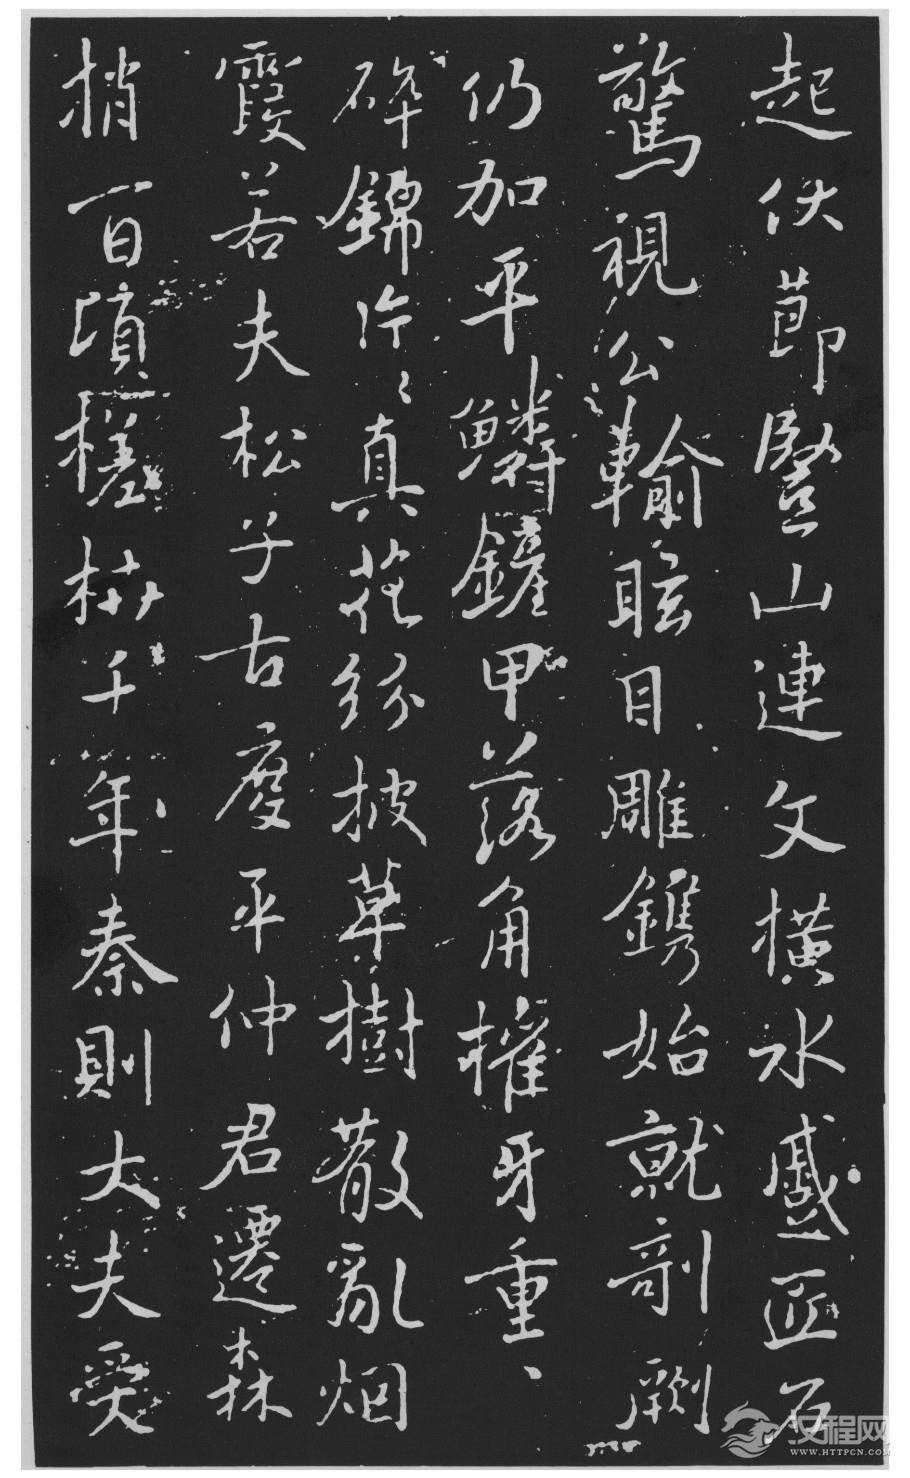 起伏節豎山連文橫水蹙匠石
驚視公輸眩目雕鐫始就剞劂
仍加平鱗鏟甲落角摧牙重、
碎錦片、真花紛披草樹散亂烟
霞若夫松子古度平仲君遷森
梢百頃槎枿千年秦則大夫受
汉程网
WWW.HTTPCN.COM